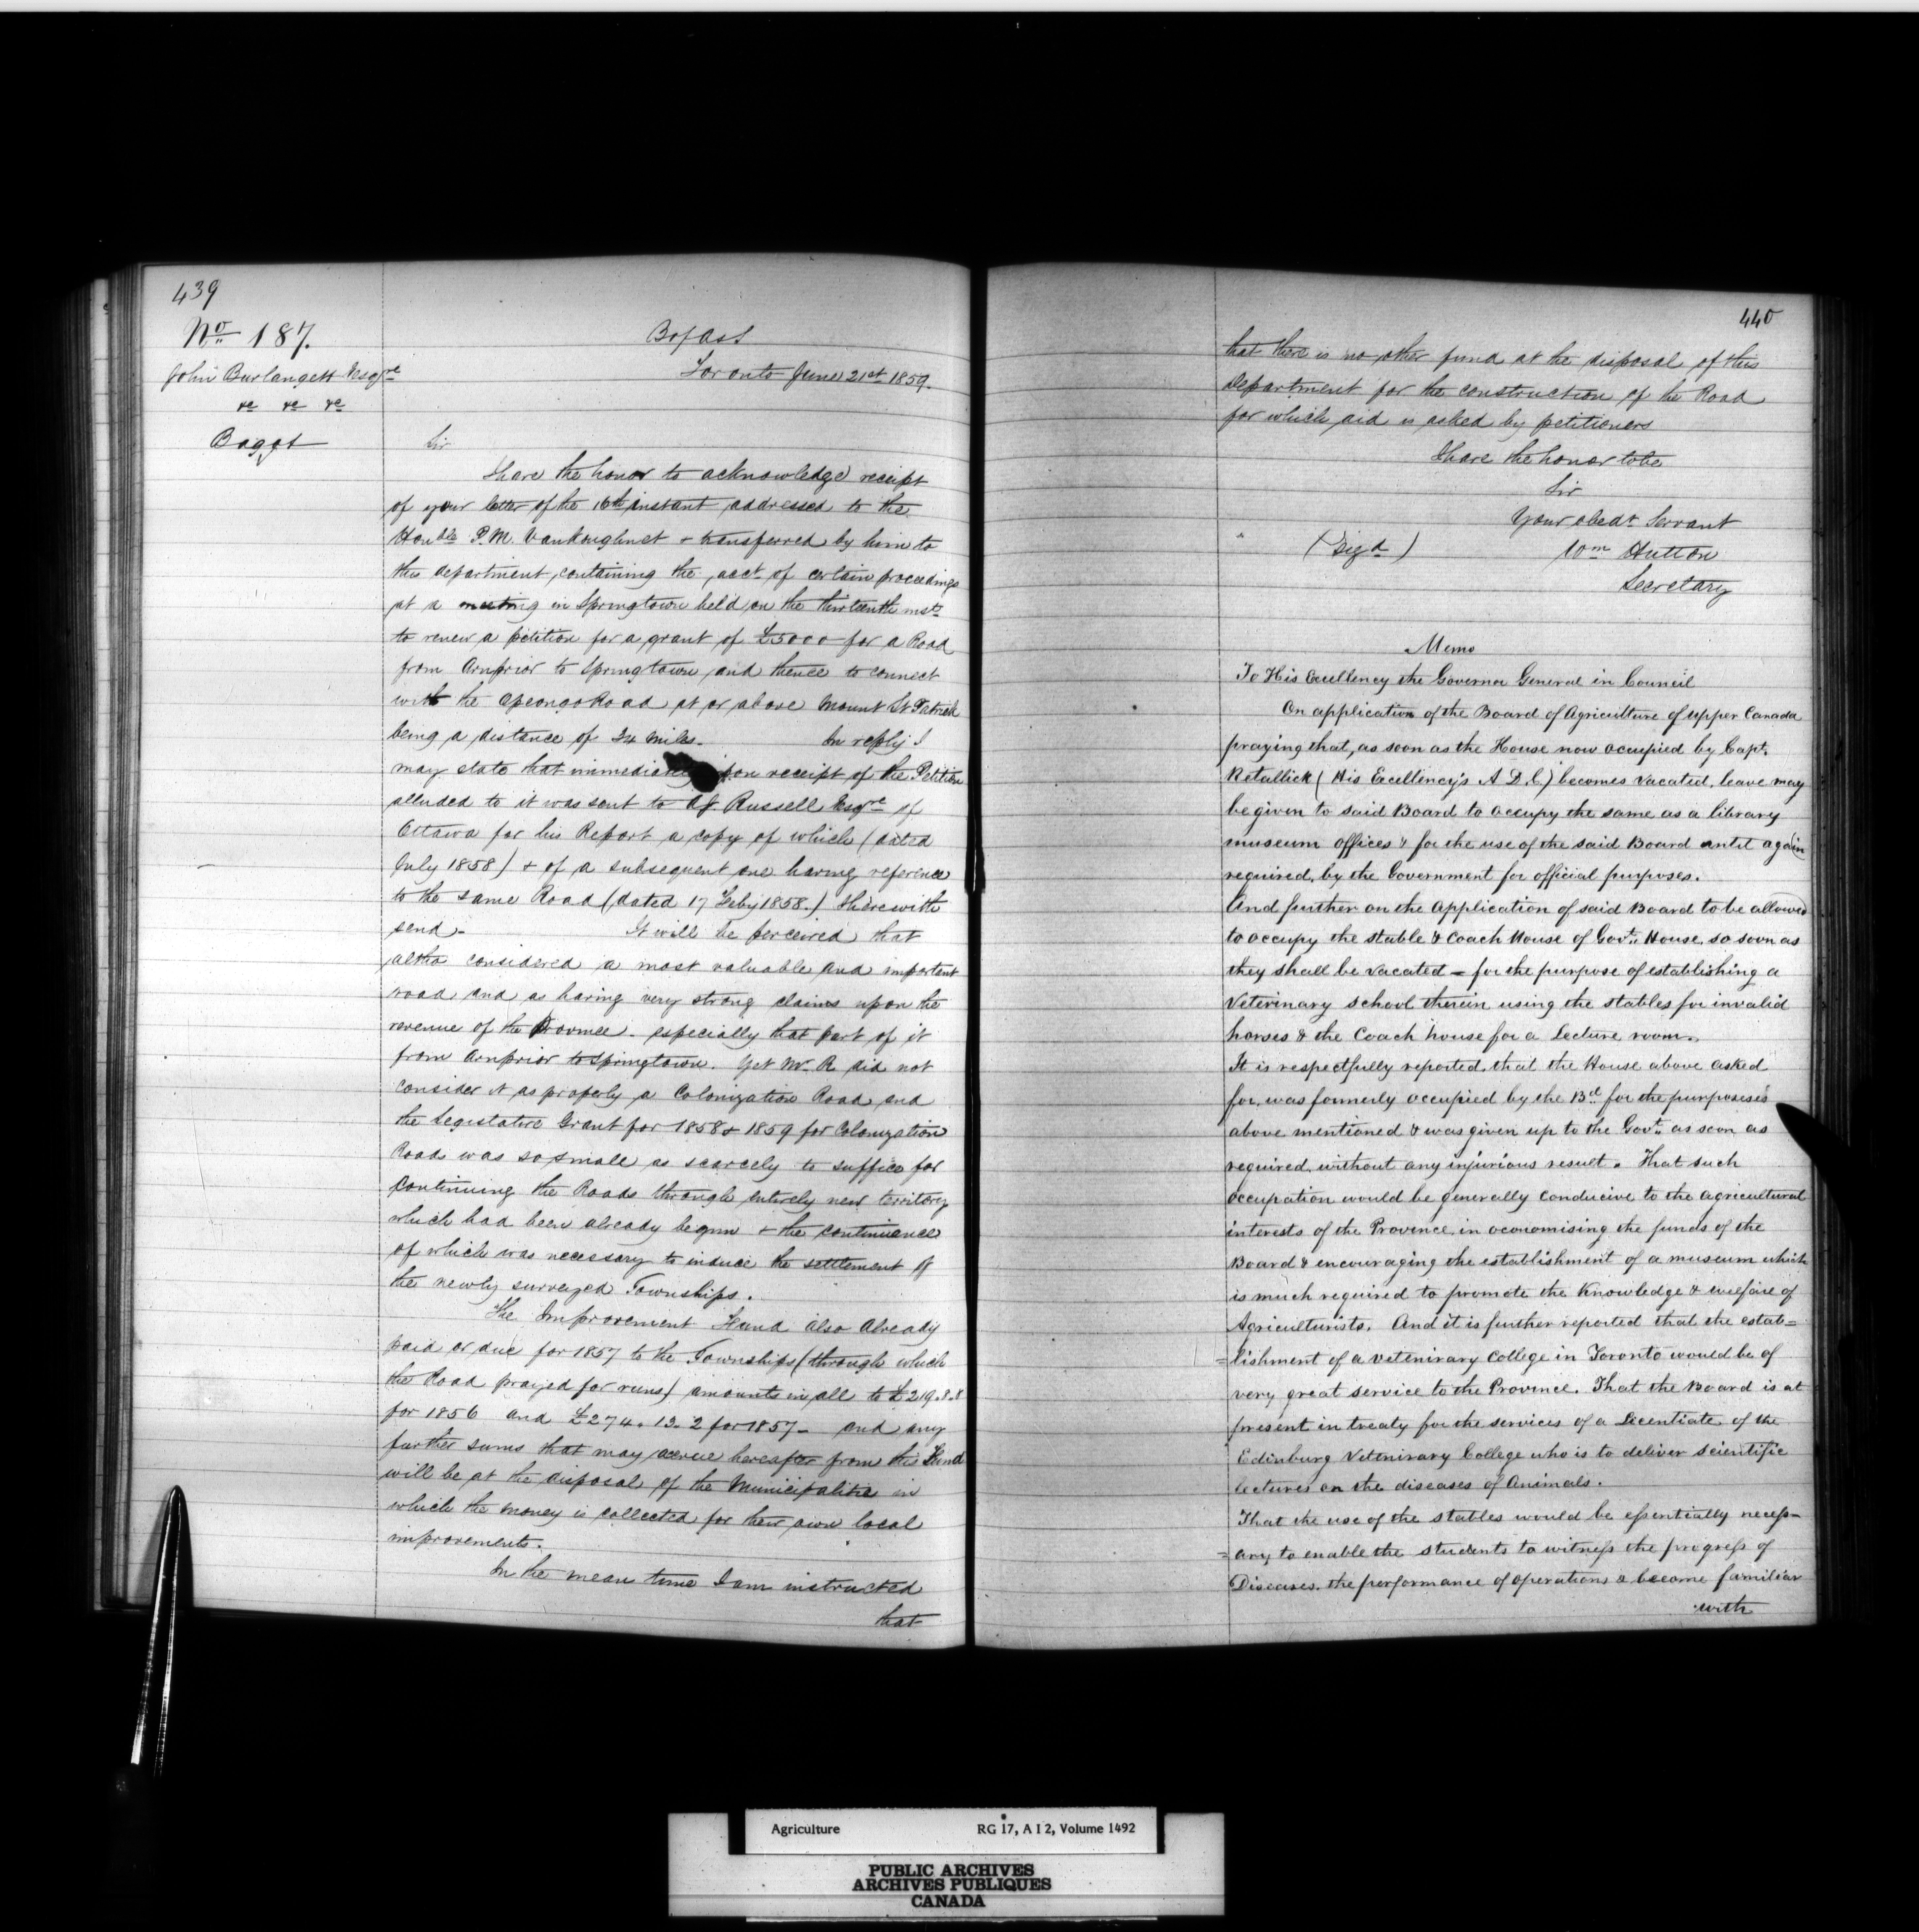 439
No 187.
John Burlangett Esqre
&c &c &c
Bagot
B of A & S
Toronto June 21st 1859.
Sir
I have the honor to acknowledge receipt
of your letter of the 16th instant addressed to the
Honble P. M. Vankoughnet & transferred by him to
this department, containing the acct of certain proceedings
at a meeting in Springtown held on the thirteenth inst
to renew a petition for a grant of £5000 for a Road
from Arnprior to Springtown and thence to connect
with the Opeongo Road at or above Mount St Patrick
being a distance of 34 miles. In reply I
may state that immediately upon receipt of the Petition
alluded to it was sent to AJ Russell Esqre of
Ottawa for his Report a copy of which (dated
July 1858) & of a subsequent one having reference
to the same Road (dated 17 Feby 1858.) I herewith
send. It will be perceived that
altho considered a most valuable and important
road and as having very strong claims upon the
revenue of the Province. especially that part of it
from Arnprior to Springtown. Yet Mr. R did not
consider it as properly a Colonization Road and
the Legislative Grant for 1858 & 1859 for Colonization
Roads was so small as scarcely to suffice for
continuing the Roads through entirely new territory
which had been already begun & the continuance
of which was necessary to induce the settlement of
the newly surveyed Townships.
The Improvement Fund also already
paid or due for 1857 to the Townships (through which
the Road prayed for runs) amounts in all to £219.8.8
for 1856 and £274.13.2 for 1857 - and any
further sums that may accrue hereafter from this Fund
will be at the disposal of the Municipalitie in
which the money is collected for their own local
improvements.
In the mean time I am instructed
that
440
that there is no other fund at the disposal of this
Department for the construction of the Road
for which aid is asked by petitioners
I have the honor to be
Sir
Your obedt Servant
(Sigd) Wm Hutton
Secretary
Memo
To His Excellency the Governor General in Council
On application of the Board of Agriculture of Upper Canada
praying that, as soon as the House now occupied by Capt.
Retallick (His Excellency's A D C) becomes vacated, leave may
be given to said Board to occupy the same as a library
museum offices & for the use of the said Board until again
required, by the Government for official purposes.
And further on the application of said Board to be allowed
to occupy the stable & Coach House of Govt. House, so soon as
they shall be vacated - for the purpose of establishing a
Veterinary school therein using the stables for invalid
horses & the Coach house for a Lecture room.
It is respectfully reported, that the House above asked
for, was formerly occupied by the Bd for the purposeses
above mentioned & was given up to the Govt. as soon as
required, without any injurious result. That such
occupation would be generally conducive to the agricultural
interests of the Province in oconomising the funds of the
Board & encouraging the establishment of a museum which
is much required to promote the Knowledge & welfare of
Agriculturists. And it is further reported that the estab=
=lishment of a vetenirary College in Toronto would be of
very great service to the Province. That the Board is at
present in treaty for the services of a Licentiate of the
Edinburg Vetenirary College who is to deliver scientific
lectures on the diseases of Animals.
That the use of the stables would be essentially necess=
=ary to enable the students to witness the progress of
Diseases. the performance of operations & become familiar
with
Agriculture RG 17, A I 2, Volume 1492
PUBLIC ARCHIVES
ARCHIVES PUBLIQUES
CANADA